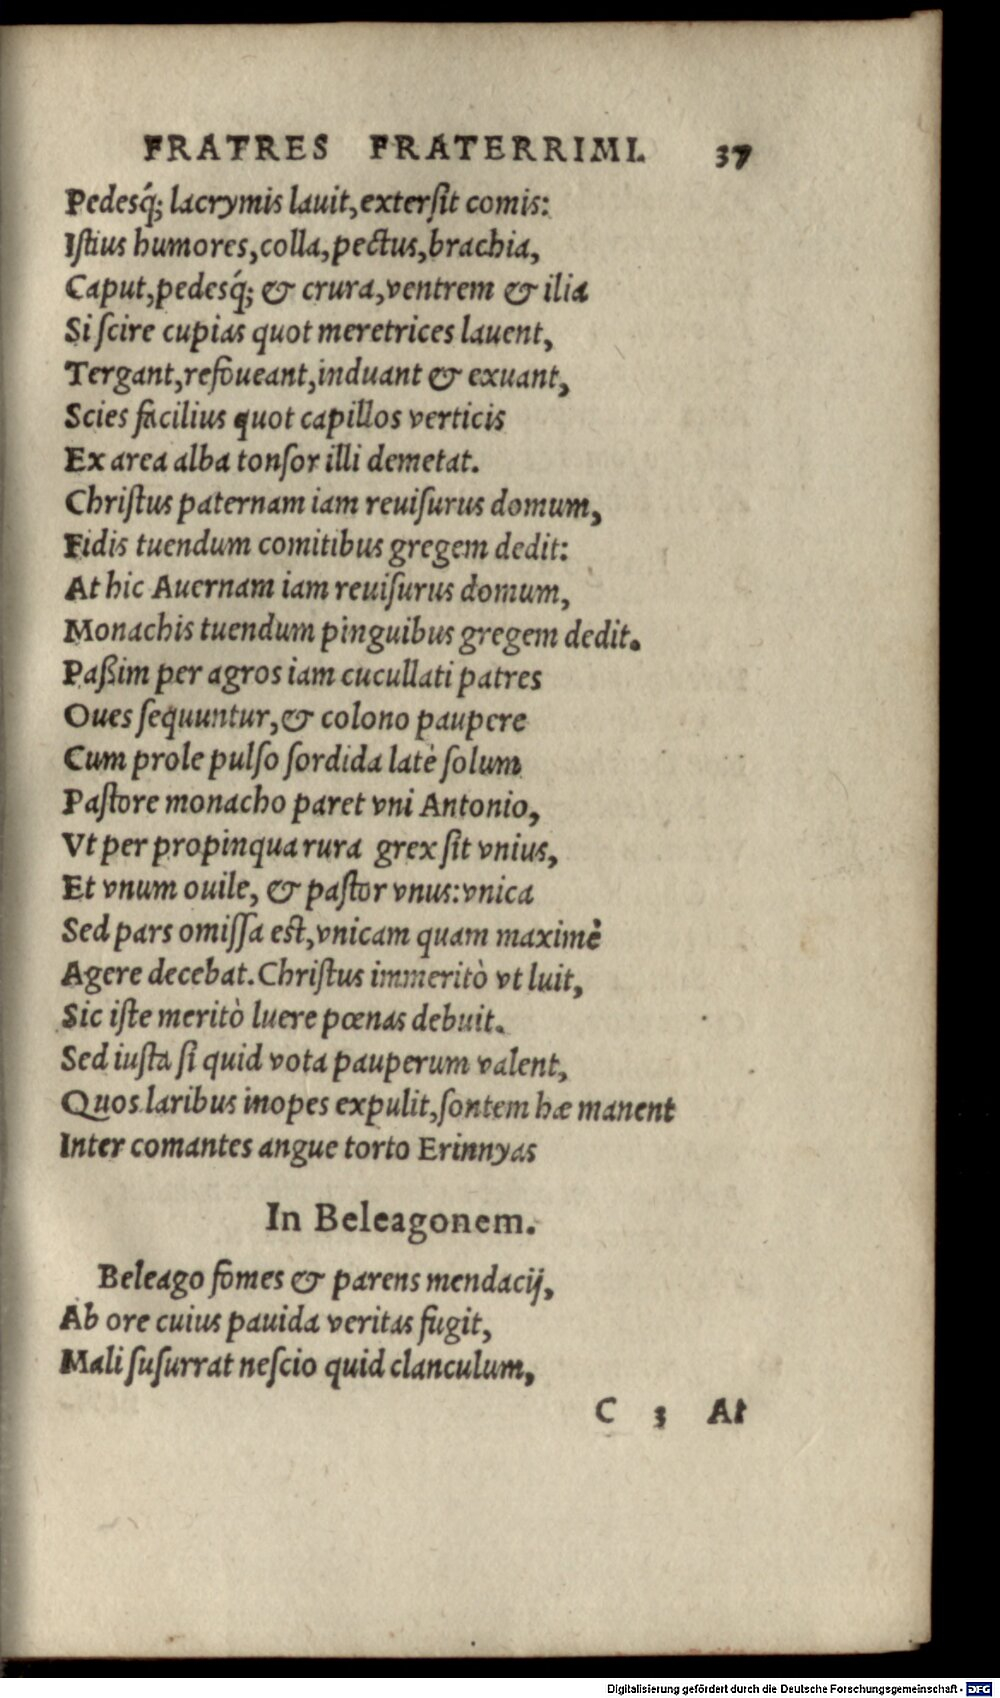 FRATRES FRATERRIMI. 37
Pedesq́; lacrymis lauit, extersit comis:
Istius humores, colla, pectus, brachia,
Caput, pedesq́; & crura, ventrem & ilia
Si scire cupias quot meretrices lauent,
Tergant, refoueant, induant & exuant,
Scies facilius quot capillos verticis
Ex area alba tonsor illi demetat.
Christus paternam iam reuisurus domum,
Fidis tuendum comitibus gregem dedit:
At hic Auernam iam reuisurus domum,
Monachis tuendum pinguibus gregem dedit.
Paßim per agros iam cucullati patres
Oues sequuntur, & colono paupere
Cum prole pulso sordida latè solum
Pastore monacho paret vni Antonio,
Vt per propinqua rura grex sit vnius,
Et vnum ouile, & pastor vnus: vnica
Sed pars omissa est, vnicam quam maximè
Agere decebat. Christus immeritò vt luit,
Sic iste meritò luere pœnas debuit.
Sed iusta si quid vota pauperum valent,
Quos laribus inopes expulit, sontem hæ manent
Inter comantes angue torto Erinnyas
In Beleagonem.
Beleago fomes & parens mendacij,
Ab ore cuius pauida veritas fugit,
Mali susurrat nescio quid clanculum,
C 3 At
Digitalisierung gefördert durch die Deutsche Forschungsgemeinschaft - DFG